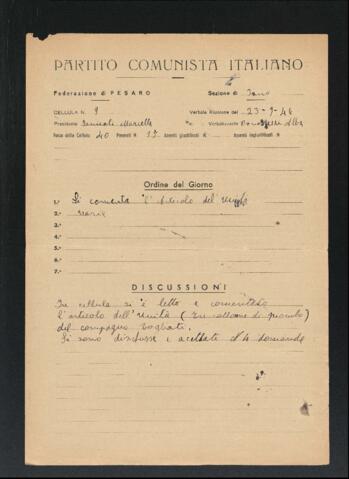 PARTITO COMUNISTA ITALIANO
Federazione di PESARO Sezione di Fano
CELLULA N. 9 Verbale Riunione del 23-9-46
Presidente Marcella Verbalizzante Alba
Forza della Cellula 40 Presenti N. 17 Assenti giustificati N. Assenti ingiustificati N.
Ordine del Giorno
1.° Si comenta l'articolo del
2.° varie
3.°
4.°
5.°
6.°
7.°
DISCUSSIONI
In cellula si è letto e comentato
l'articolo dell'Unità (
del compagno Togliati.
Si sono discusse e acettate N 4 domande